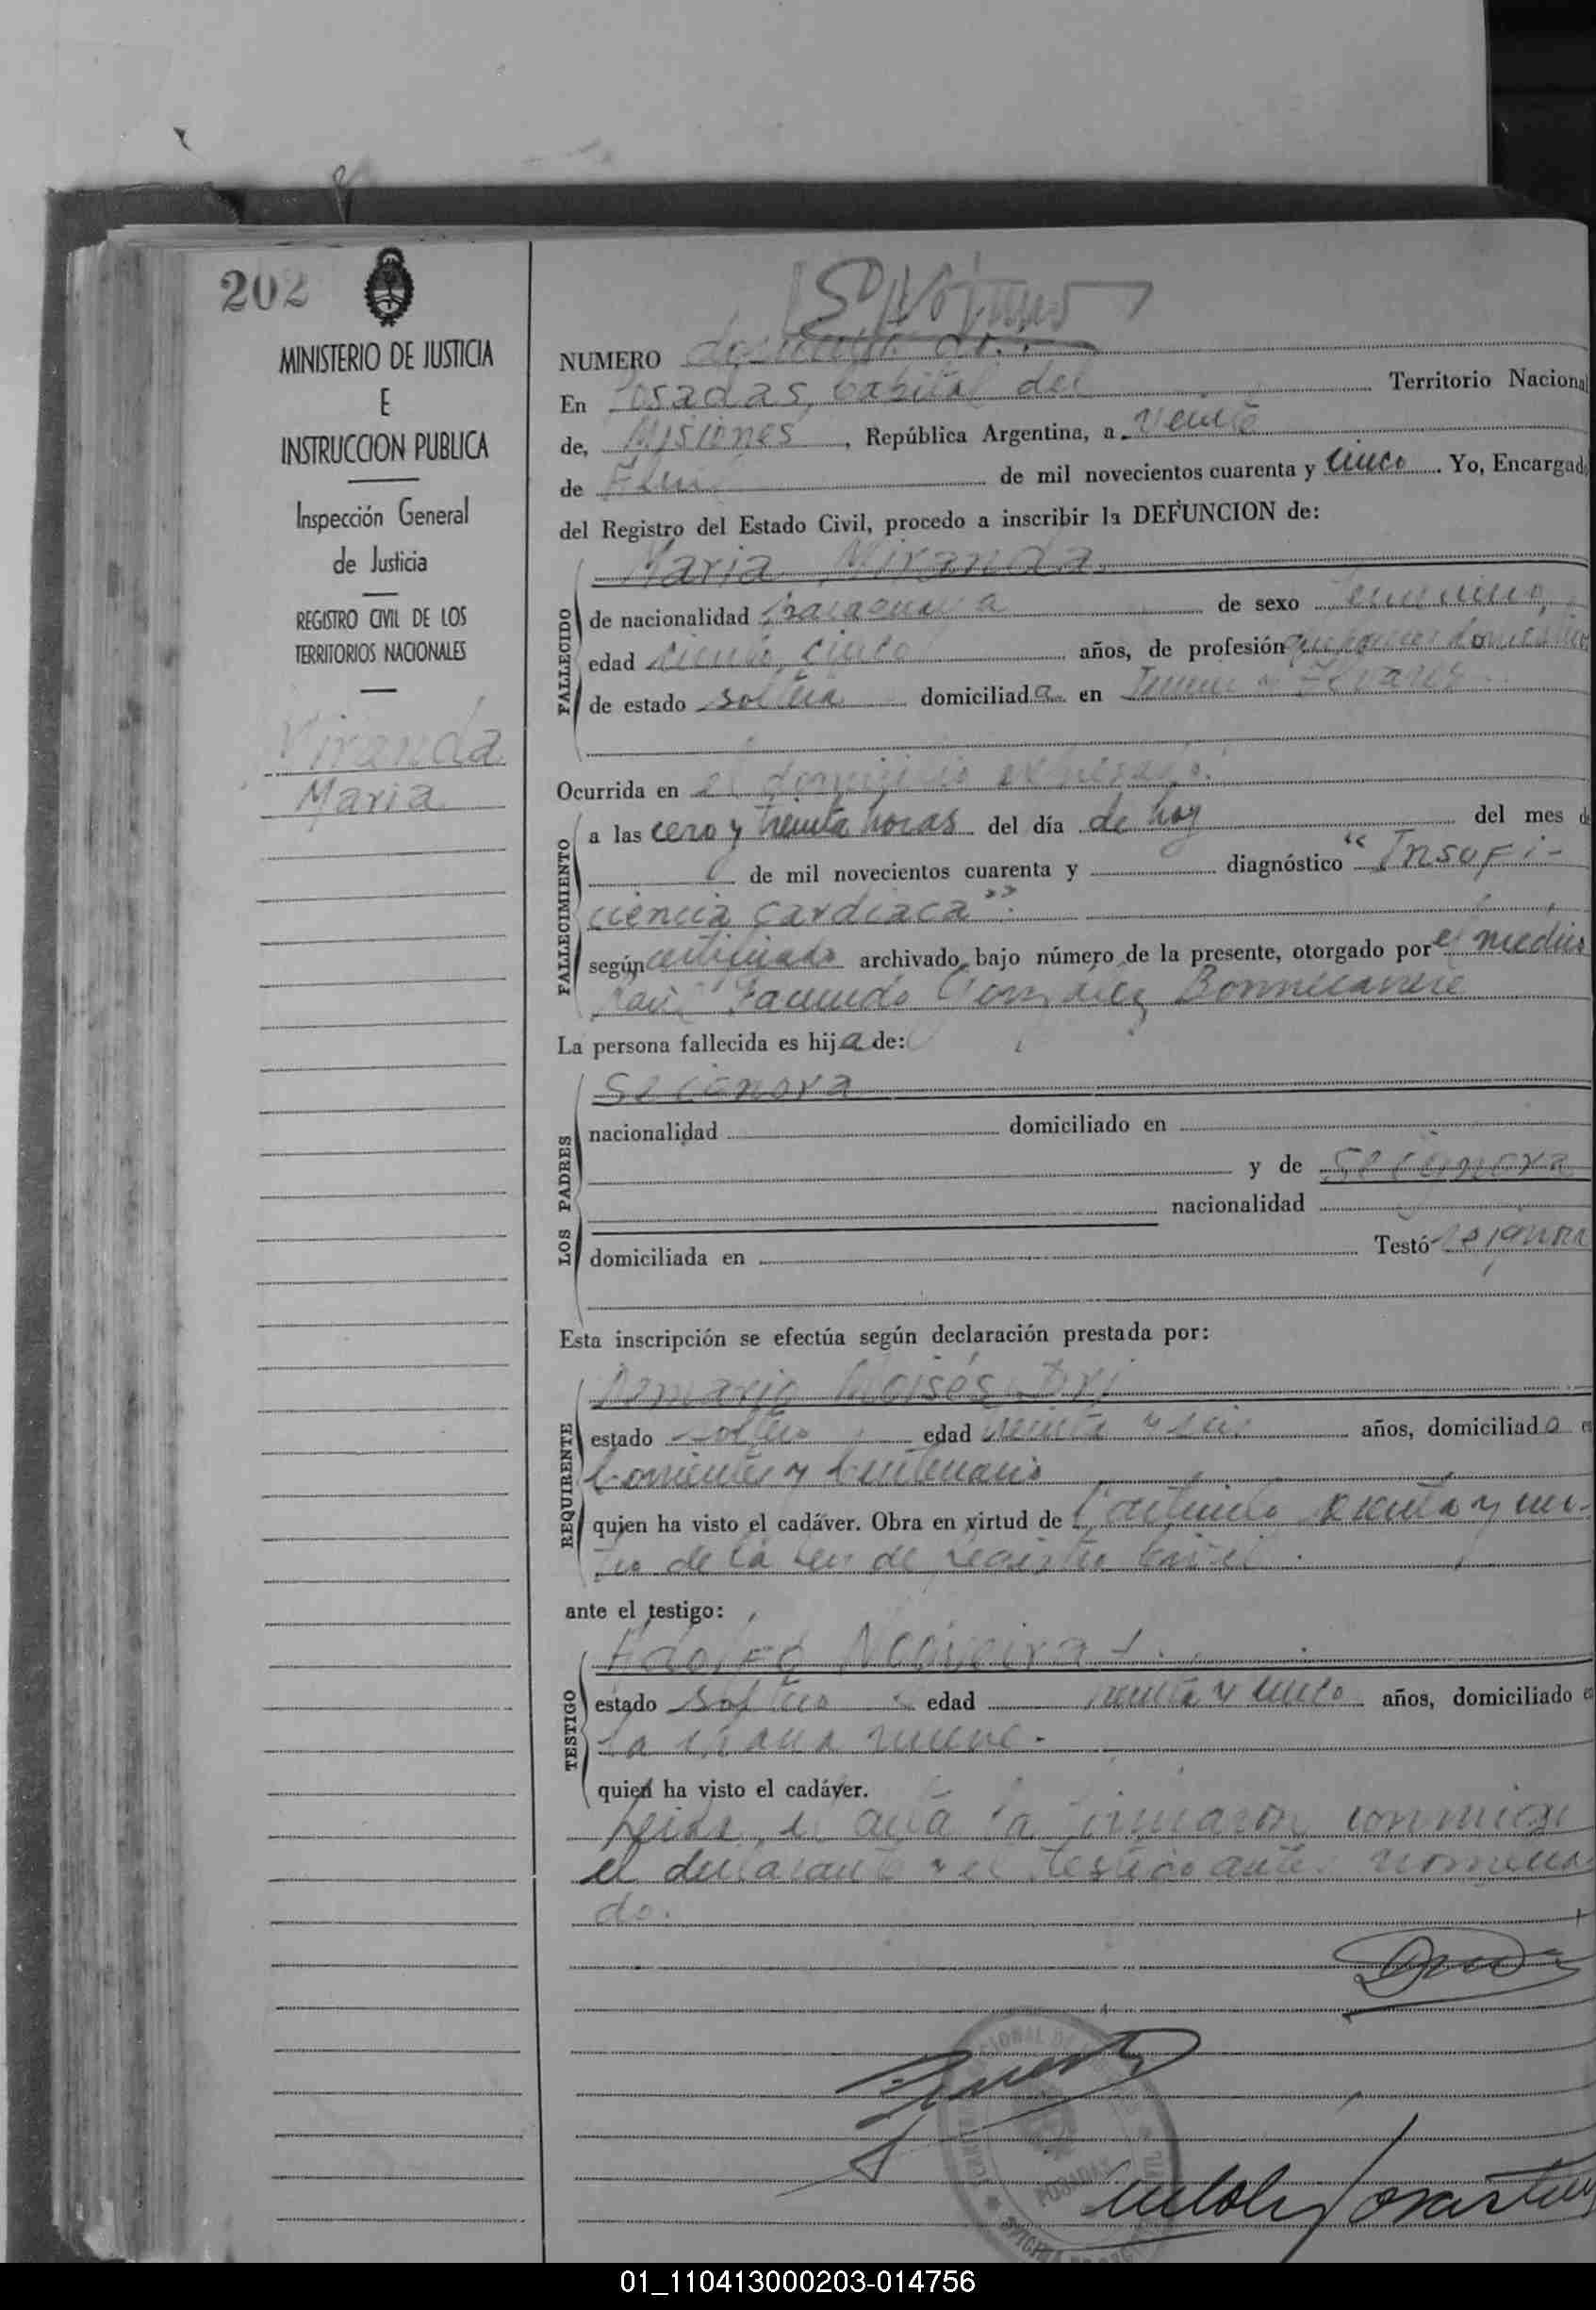 202
MINISTERIO DE JUSTICIA
E
INSTRUCCION PUBLICA
Inspección General
de Justicia
REGISTRO CIVIL DE LOS
TERRITORIOS NACIONALES
Miranda
Maria
NUMERO doscientos dos
En Posadas, Capital del Territorio Nacional
de, Misiones, República Argentina, a veinte
de Abril de mil novecientos cuarenta y cinco. Yo, Encargado
del Registro del Estado Civil, procedo a inscribir la DEFUNCION de:
Maria Miranda.
FALLECIDO
de nacionalidad paraguaya de sexo femenino,
edad ciento cinco años, de profesión quehaceres domesticos
de estado soltera domiciliada en y Alvarez
Ocurrida en el domicilio expresado.
FALLECIMIENTO
a las cero y treinta horas del día de hoy del mes de
de mil novecientos cuarenta y diagnóstico "Insufi-
ciencia cardiaca".
según certificado archivado bajo número de la presente, otorgado por el medico
Raúl Facundo González
La persona fallecida es hija de:
LOS PADRES
Se ignora
nacionalidad domiciliado en
y de se ignora
nacionalidad
domiciliada en Testó se ignora
Esta inscripción se efectúa según declaración prestada por:
REQUIRENTE
Moisés
estado soltero edad y seis años, domiciliado e
Corrientes y Centenario
quien ha visto el cadáver. Obra en virtud de l'articulo sesenta y cua-
tro de la ley de registro Civil.
ante el testigo:
TESTIGO
Adolfo
estado soltero edad treinta y cinco años, domiciliado e
la nueve.
quien ha visto el cadáver.
Leida el acta la firmaron conmigo
el declarante y el testigo antes nomina-
do.
POSADAS
01_110413000203-014756